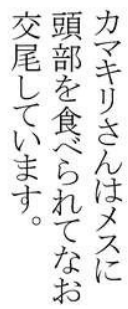 カマキリさんはメスに
頭部を食べられてなお
交尾しています。